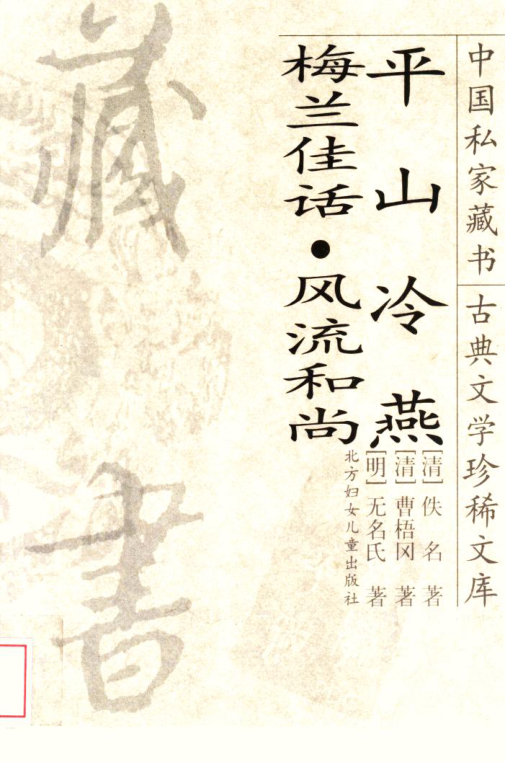 中国私家藏书
古典文学珍稀文库
平山冷燕
梅兰佳话·风流和尚
[清]佚名 著
[清]曹梧冈 著
[明]无名氏 著
北方妇女儿童出版社
藏書